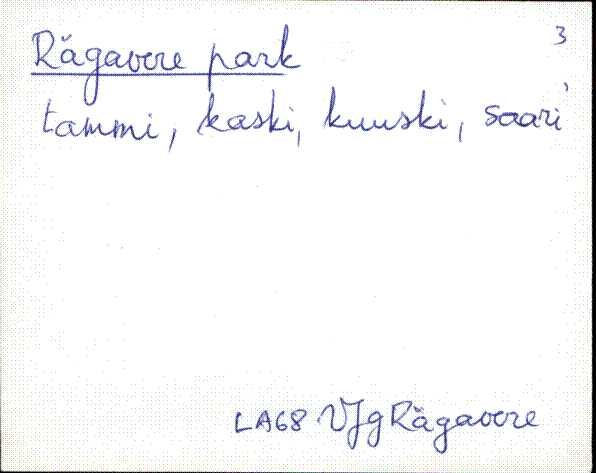 3
Rägavere park
tammi, kaski, kuuski, saari
LA68 VJg Rägavere